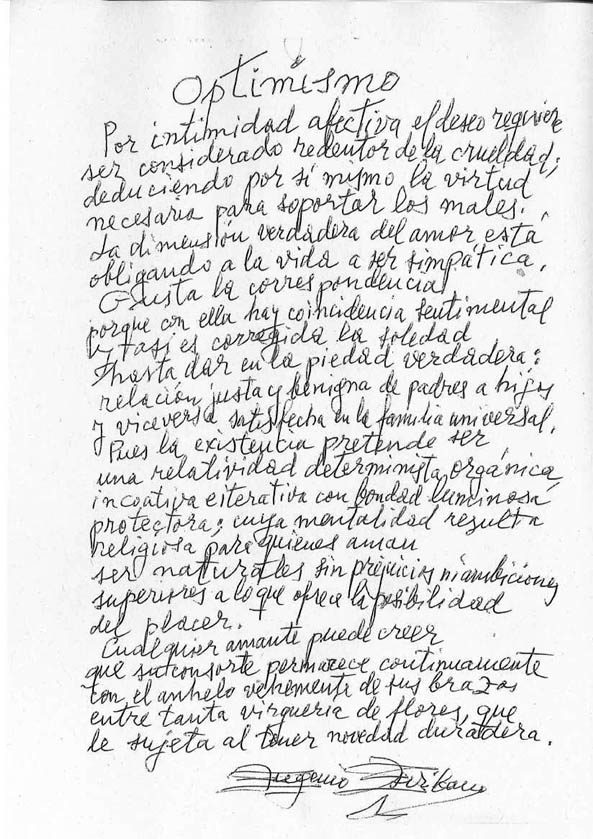 Optimismo
Por intimidad afectiva el deseo requiere
ser considerado redentor de la crueldad;
deduciendo por sí mismo la virtud
necesaria para soportar los males.
La dimensión verdadera del amor está
obligando a la vida a ser simpática.
Gusta la correspondencia
porque con ella hay coincidencia sentimental
y así es corregida la soledad
hasta dar en la piedad verdadera:
relación justa y benigna de padres a hijos
y viceversa satisfecha en la familia universal.
Pues la existencia pretende ser
una relatividad determinista, orgánica,
incoativa e iterativa con bondad luminosa
protectora; cuya mentalidad resulta
religiosa para quienes aman
ser naturales sin prejuicios ni ambiciones
superiores a lo que ofrece la posibilidad
del placer.
Cualquier amante puede creer
que su consorte permanece continuamente
con el anhelo vehemente de sus brazos
entre tanta virguería de flores, que
le sujeta al tener novedad duradera.
Eugenio